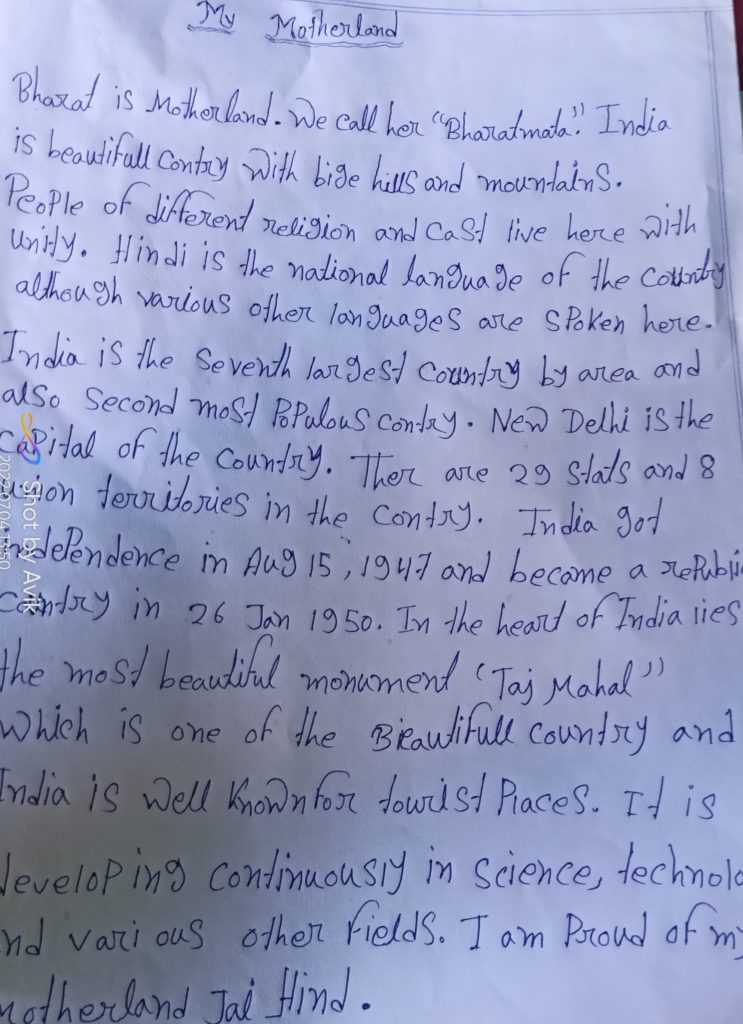 My Motherland
Bharat is Motherland. We call her "Bharatmata". India
is beautifull Contry With bige hills and mountains.
People of different religion and Cast live here with
Unity. Hindi is the national language of the Country
although various other languages are spoken here.
India is the Seventh largest Country by area and
also Second most Populous contry. New Delhi is the
Capital of the Country. Ther are 29 Stats and 8
union territories in the Contry. India got
indePendence in Aug 15, 1947 and become a rePublic
Contry in 26 Jan 1950. In the heart of India lies
the most beautiful monument "Taj Mahal"
Which is one of the Bieautifull Country and
India is Well Known for tourist Places. It is
developing Continuously in Science, technolo
nd various other fields. I am Proud of my
motherland Jai Hind.
Shot by Avik
2022/07/04 13:50